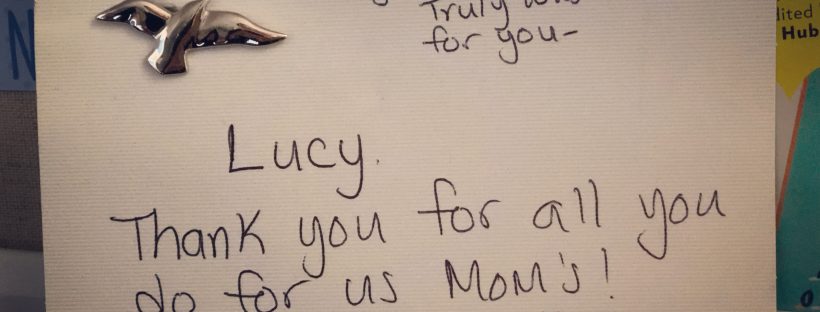 Truly
for you-
Lucy.
Thank you for all you
do for us Mom's!
N
Hub